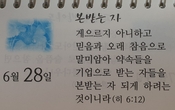 본받는 자
게으르지 아니하고
믿음과 오래 참음으로
말미암아 약속들을
기업으로 받는 자들을
본받는 자 되게 하려는
것이니라(히 6:12)
6월 28일